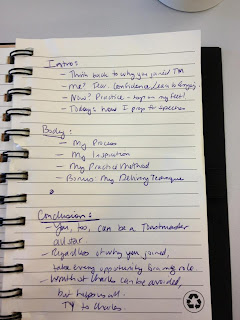 Intro:
- Think back to why you joined TM
- Me? Fear. Confidence, Learn to
- Now? Practice - on my feet!
- Today: how I prep for speeches
Body:
- My Process
- My Inspiration
- My Practice Method
- Bonus: My Delivery Technique
Conclusion:
- You, too, can be a Toastmaster
all star
- Regardless of why you joined,
take every opportunity
- Wrath of Charles can be avoided,
but happens
TY to Charles